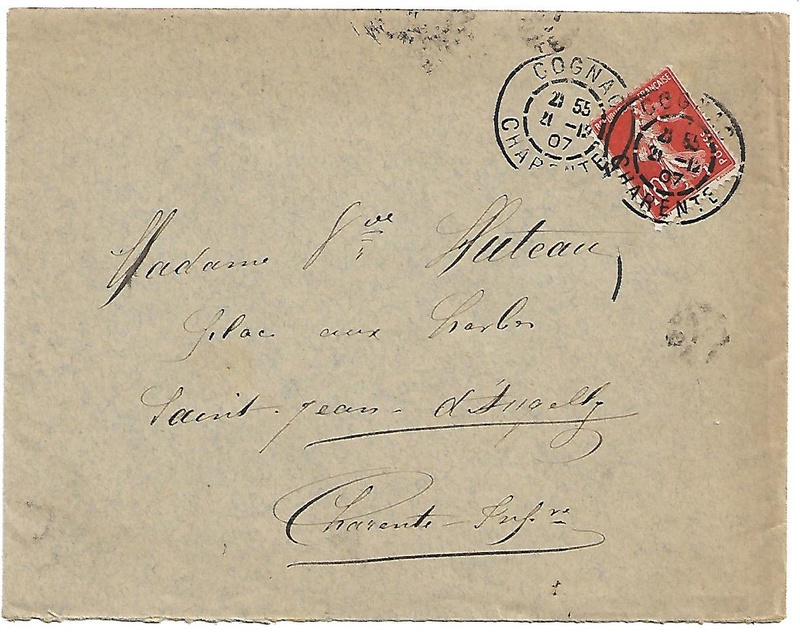 COGNAC
21 55
21 -12
07
CHARENTE
COGNAC
21 55
21 -12
07
CHARENTE
FRANÇAISE
POSTES
10
Madame Vve Huteau,
place aux herbes
Saint-Jean-d'Angelly
Charente-Infre